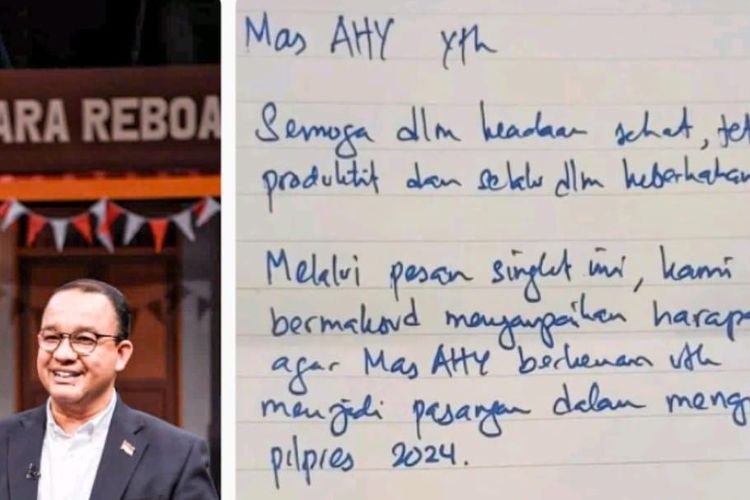 ARA REBOA
Mas AHY Yth
Semoga dlm keadaan sehat, tet
produktif dan selalu dlm keberkahan
Melalui pesan singkat ini, kami
bermaksud menyampaikan harapa
agar Mas AHY berkenan utk
menjadi pasangan dalam meng
pilpres 2024.